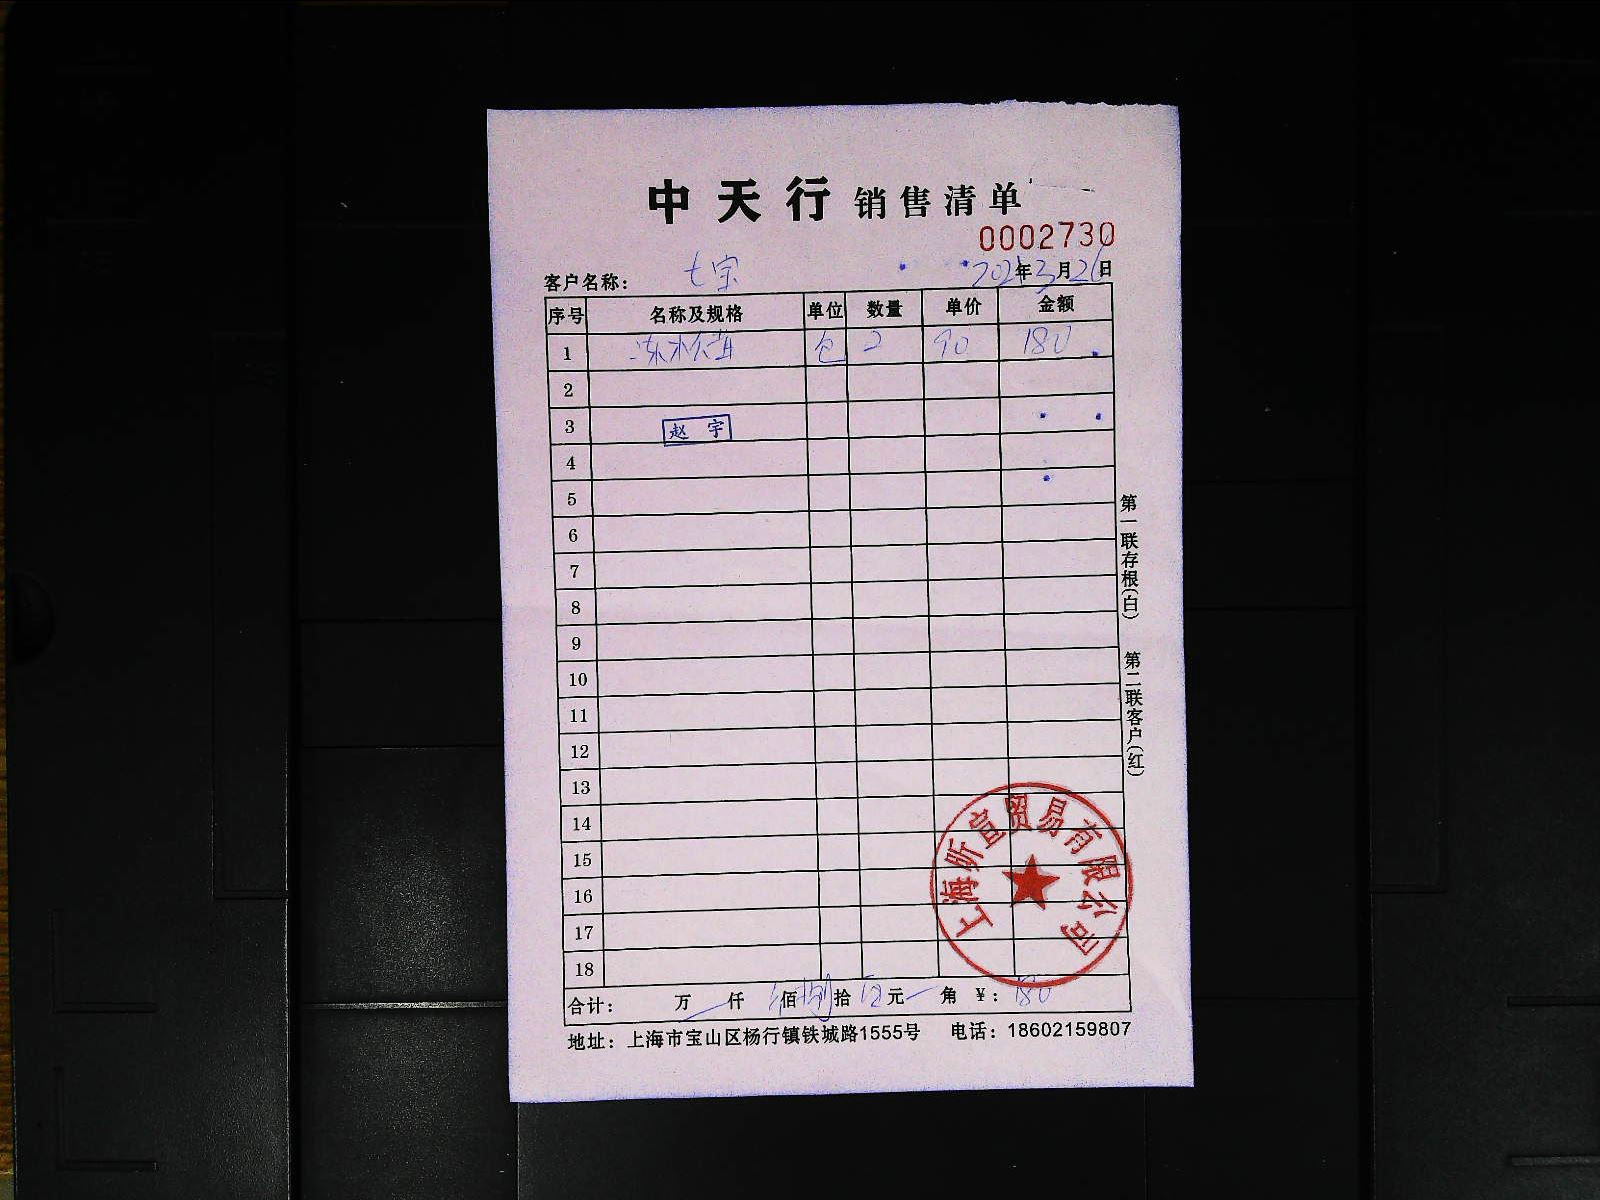 中天行 销售清单
0002730
客户名称： 七宝 2021年3月26日
序号 名称及规格 单位 数量 单价 金额
1 包 2 90 180
2
3 赵宇
4
5
6
7
8
9
10
11
12
13
14
15
16
17
18
第一联存根(白) 第二联客户(红)
上海昕宣贸易有限公司
合计： 万 仟 佰 捌拾 元 角 ¥：180
地址：上海市宝山区杨行镇铁城路1555号 电话：18602159807